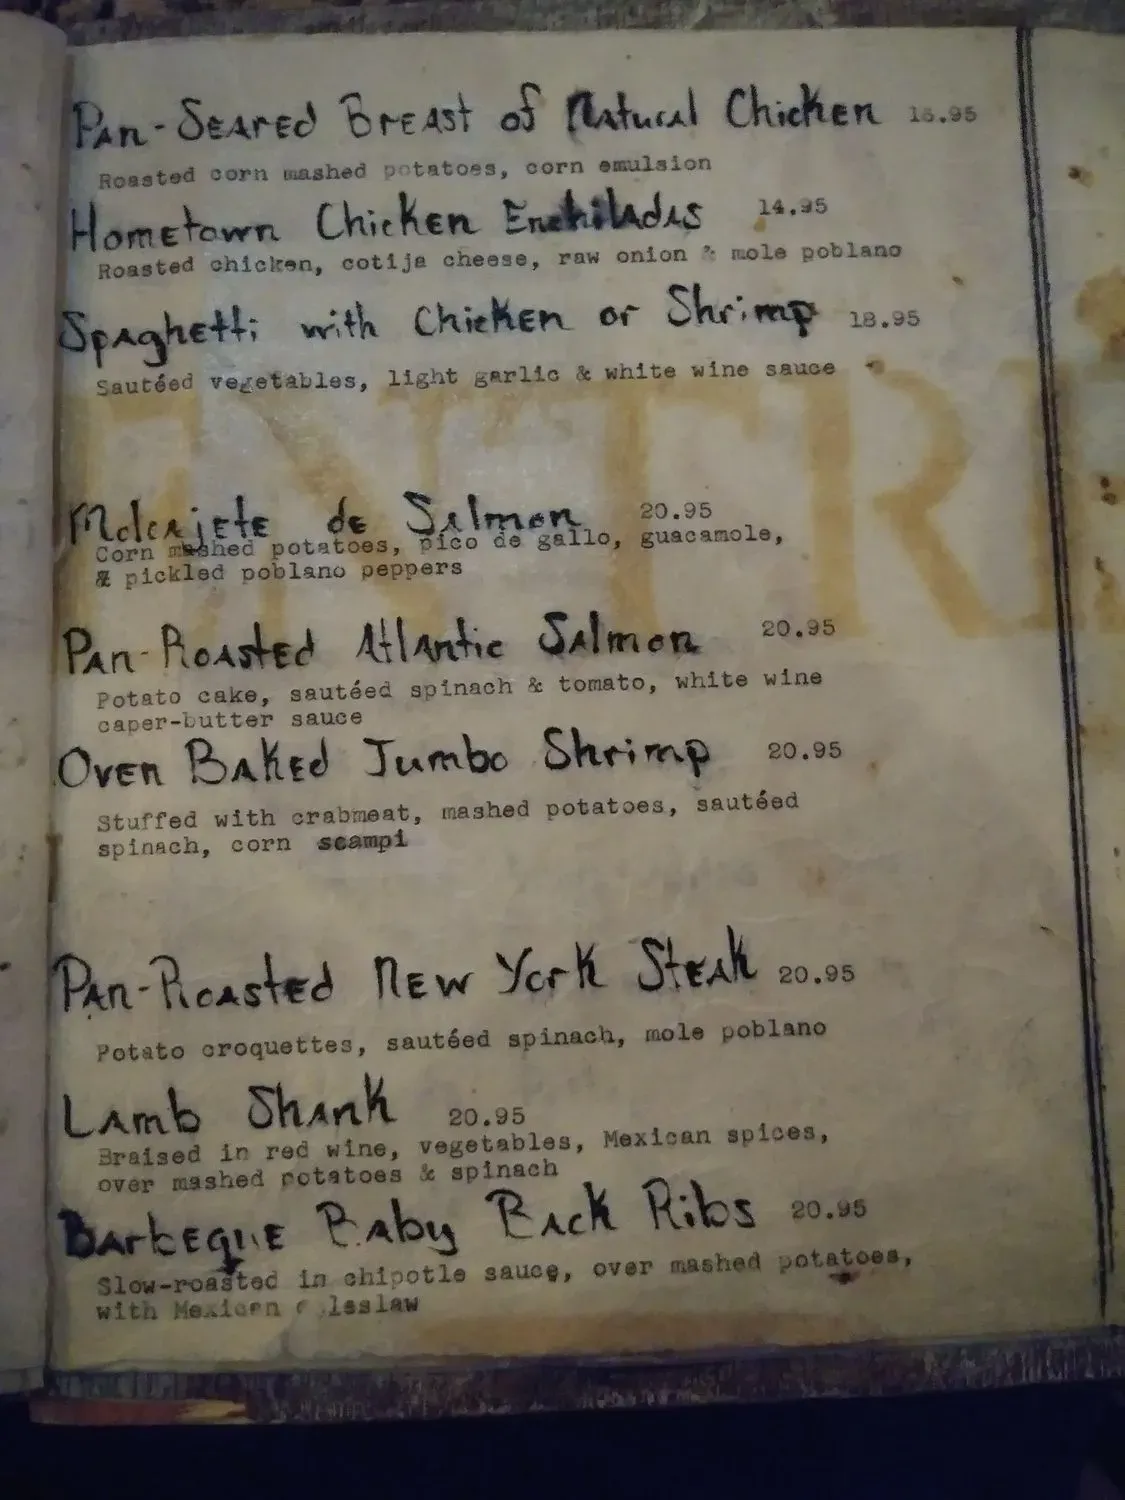 Pan-Seared Breast of Natural Chicken
Roasted corn mashed potatoes, corn emulsion
Hometown Chicken Enchiladas 14.95
Roasted chicken, cotija cheese, raw onion & mole poblano
Spaghetti with Chicken or Shrimp 18.95
Sautéed vegetables, light garlic & white wine sauce
ENTRE
Molcajete de Salmon 20.95
Corn mashed potatoes, pico de gallo, guacamole,
& pickled poblano peppers
Pan-Roasted Atlantic Salmon 20.95
Potato cake, sautéed spinach & tomato, white wine
caper-butter sauce
Oven Baked Jumbo Shrimp 20.95
Stuffed with crabmeat, mashed potatoes, sautéed
spinach, corn scampi
Pan-Roasted New York Steak 20.95
Potato croquettes, sautéed spinach, mole poblano
Lamb Shank 20.95
Braised in red wine, vegetables, Mexican spices,
over mashed potatoes & spinach
Barbeque Baby Back Ribs 20.95
Slow-roasted in chipotle sauce, over mashed potatoes,
with Mexican